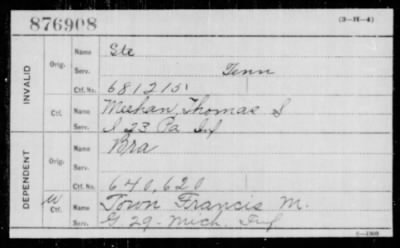 876908
(3-H-4)
INVALID
Orig.
Name Ste
Serv. Tenn
Ctf. No. 681215
Ctf.
Meehan, Thomas S
I 23 Pa. Inf
DEPENDENT
Orig.
Name Bra
Serv.
Ctf. No. 640,620
W Ctf.
Name Town Francis M.
Serv. G 29. Mich. Inf